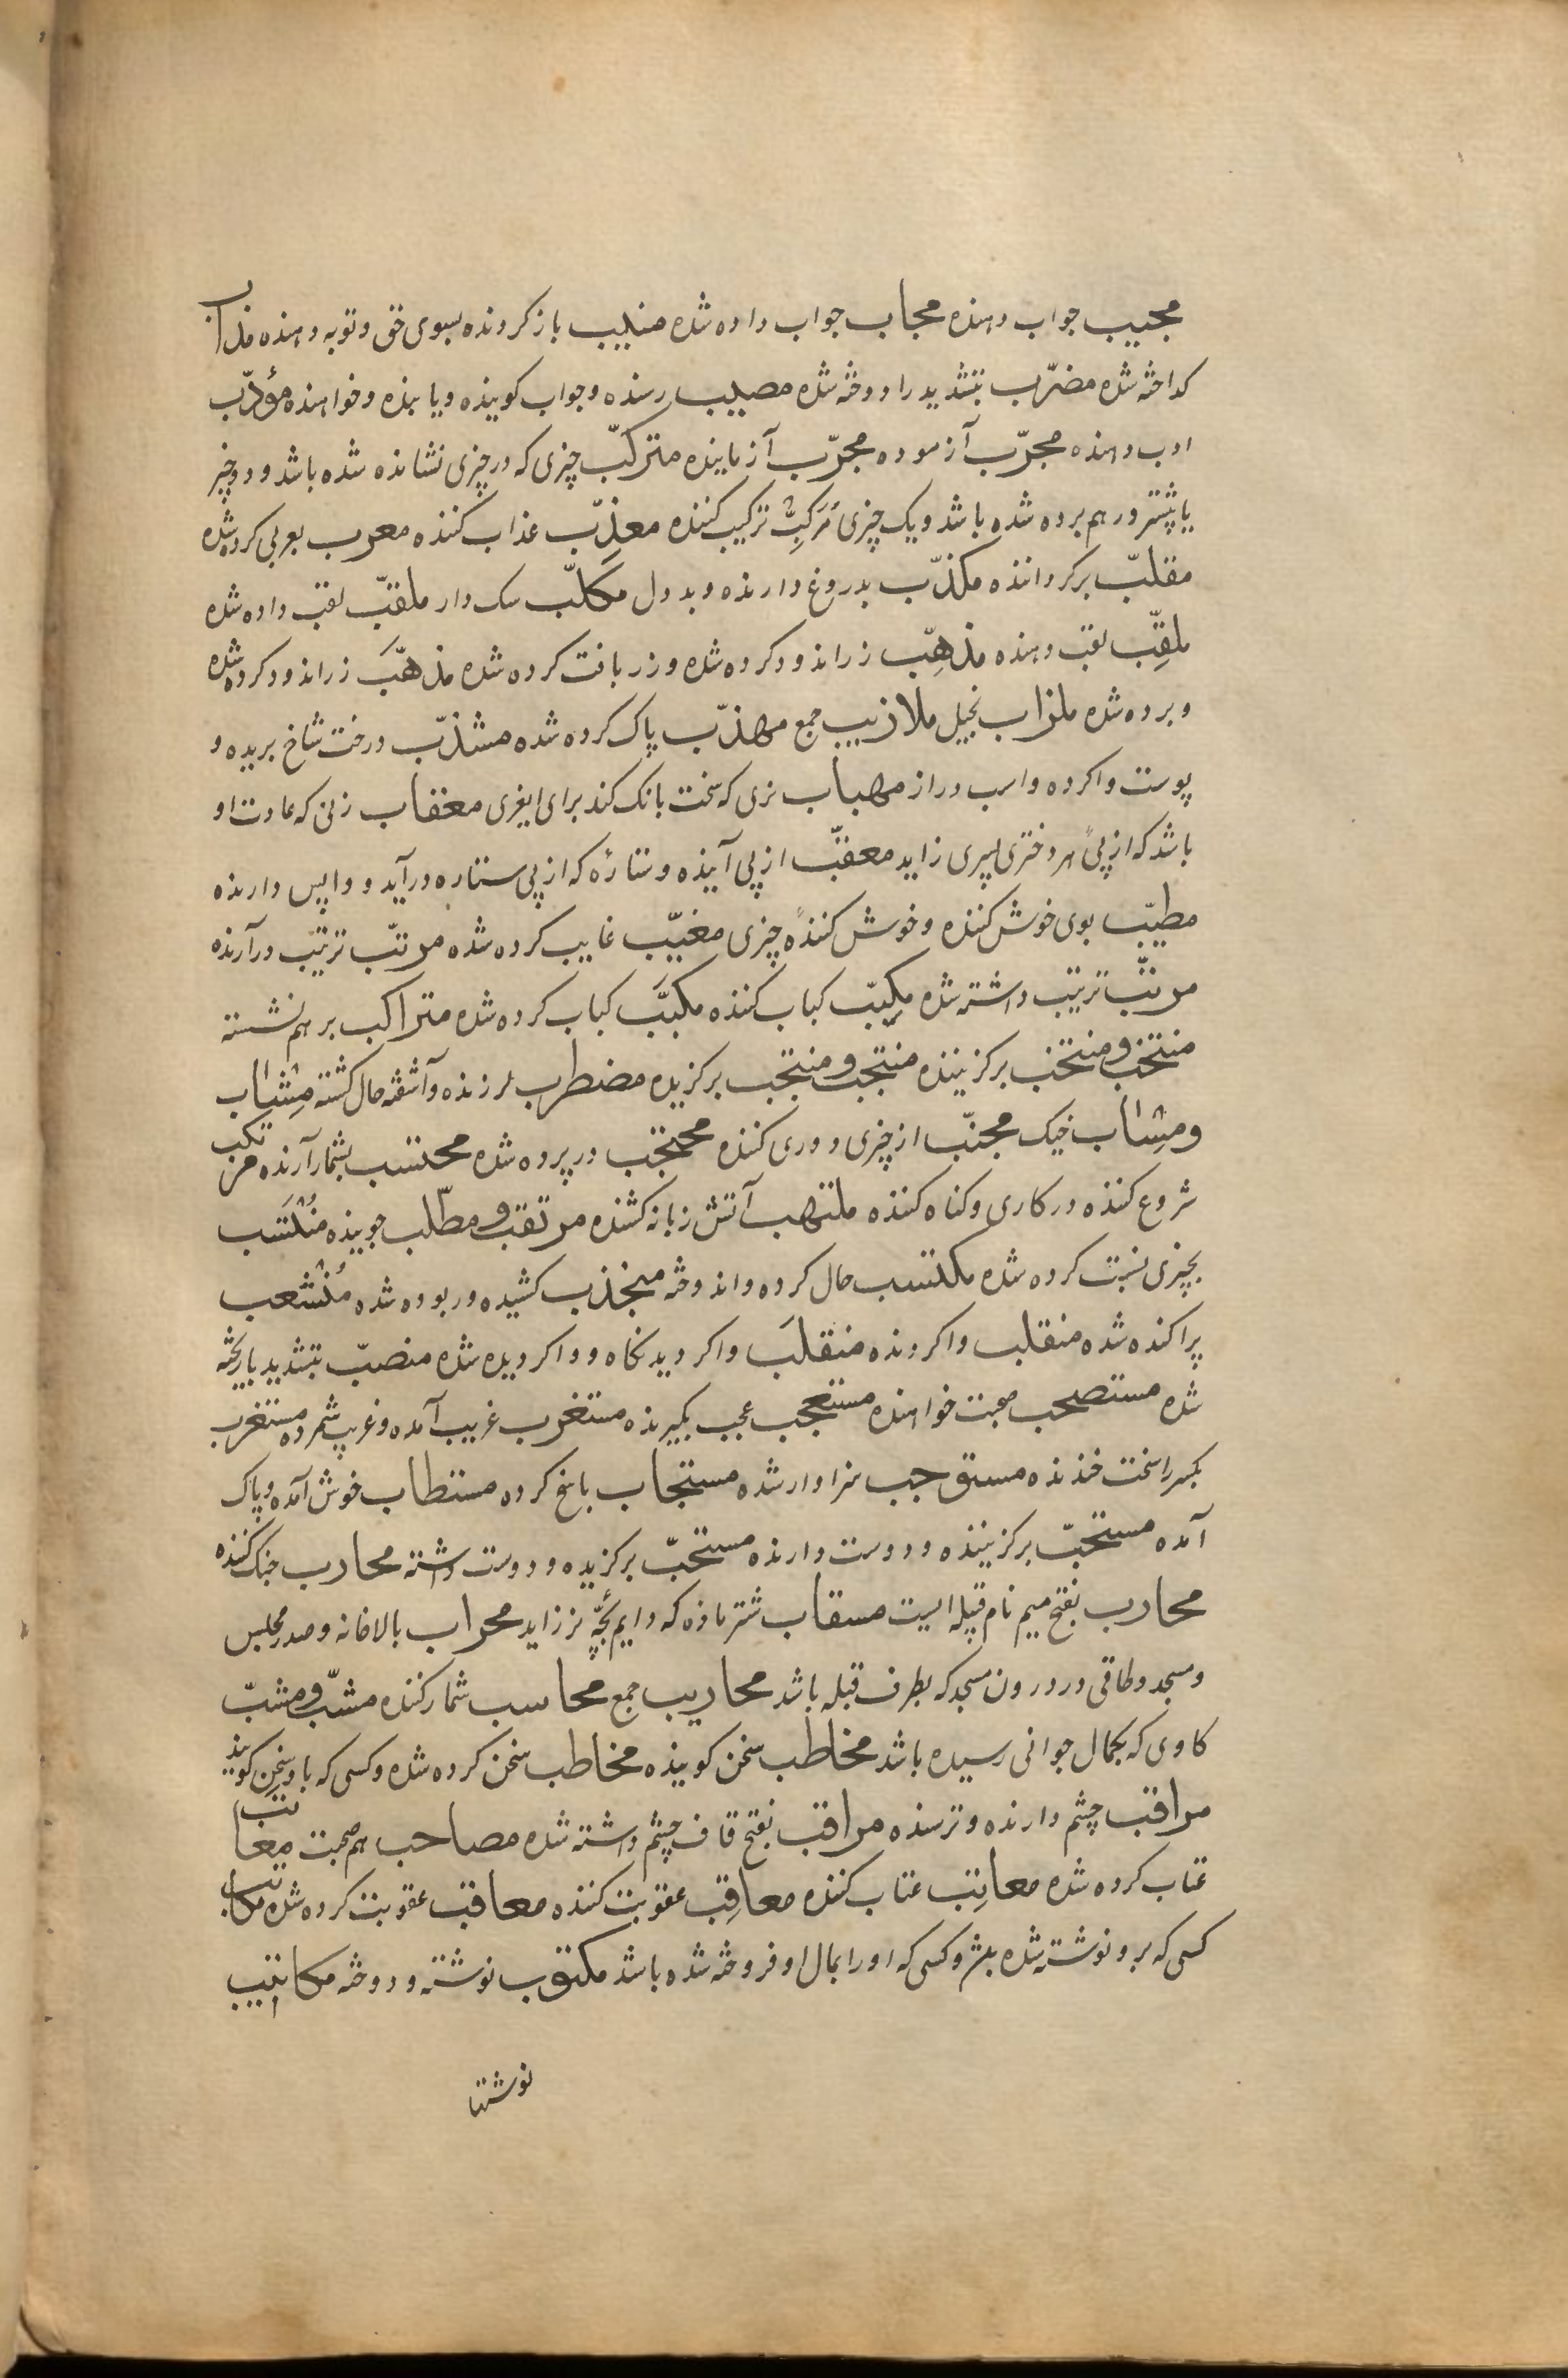 مجیب جواب دهنده مجاب جواب داده شده منیب باز کردنده بسوی حق و توبه دهنده مذاب
کداخته شده مضرّب بتشدید را دوخته شده مصیب رسنده و جواب کوینده و یابنده و خواهنده مؤدّب
ادب دهنده مجرّب آزموده مجرّب آزماینده مترکّب چیزی که در چیزی نشانده شده باشد و دو چیز
یا بیشتر در هم برده شده باشد و یک چیزی مُرَکِّبْ ترکیب کننده معذِّب عذاب کننده معرب بعربی کرده شده
مقلّب برکرداننده مکذّب بدروغ دارنده و بددل مکلّب سک دار ملقّب لقب داده شده
ملقِّب لقب دهنده مذهِّب زراندود کرده شده و زربافت کرده شده مذهَّب زراندود کرده شده
و برده شده ملزاب بخیل ملازیب جمع مهذّب پاک کرده شده مشذّب درخت شاخ بریده و
پوست واکرده و اسب دراز مهباب نری که سخت بانک کند برای ایغری معقاب زنی که عادت او
باشد که از پی هر دختری پسری زاید معقّب از پی آینده و ستاره که از پی ستاره درآید و واپس دارنده
مطیّب بوی خوش کننده و خوش کننده چیزی مغیّب غایب کرده شده مرتّب ترتیب درآرنده
مرتّب ترتیب داشته شده مکبِّب کباب کننده مکبَّب کباب کرده شده متراکب بر هم نشسته
منتخب و منتخب برکزیننده منتجب و منتجب برکزیده مضطرب لرزنده و آشفته حال کشته مِشاب
و مِشاب خیک مجنّب از چیزی دوری کننده محتجب در پرده شده محتسب بشمار آرنده مرتکب
شروع کننده در کاری و کناه کننده ملتهب آتش زبانه کشنده مرتقب و مطّلب جوینده منْتَسَب
بچیزی نسبت کرده شده مکتسب حاصل کرده و اندوخته منجذب کشیده و ربوده شده مُنْشعب
پراکنده شده منقلب واکردنده منقلَب واکردیدنکاه و واکردیده شده منصبّ بتشدید با ریخته
شده مستصحب صحبت خواهنده مستعجب عجب بکیرنده مستغرب غریب آمده و غریب شمرده مستغرب
بکسر را سخت خندنده مستوجب سزاوار شده مستجاب پاسخ کرده مستطاب خوش آمده و پاک
آمده مستحبّ برکزیننده و دوست دارنده مستحبّ برکزیده و دوست داشته محارب جنک کننده
محارب بفتح میم نام قبیله ایست مسقاب شتر ماده که دایم بچّه نر زاید محراب بالاخانه و صدر مجلس
و مسجد و طاقی در درون مسجد که بطرف قبله باشد محاریب جمع محاسب شمار کننده مشبّ و مشبّ
کاوی که بکمال جوانی رسیده باشد مخاطب سخن کوینده مخاطب سخن کرده شده و کسی که با او سخن کویند
مراقب چشم دارنده و ترسنده مراقب بفتح قاف چشم داشته شده مصاحب هم صحبت معاتب
عتاب کرده شده معاتِب عتاب کننده معاقِب عقوبت کننده معاقب عقوبت کرده شده مکاتب
کسی که برو نوشته شده باشد و کسی که او را بمال او فروخته شده باشد مکتوب نوشته و دوخته مکاتیب
نوشتها